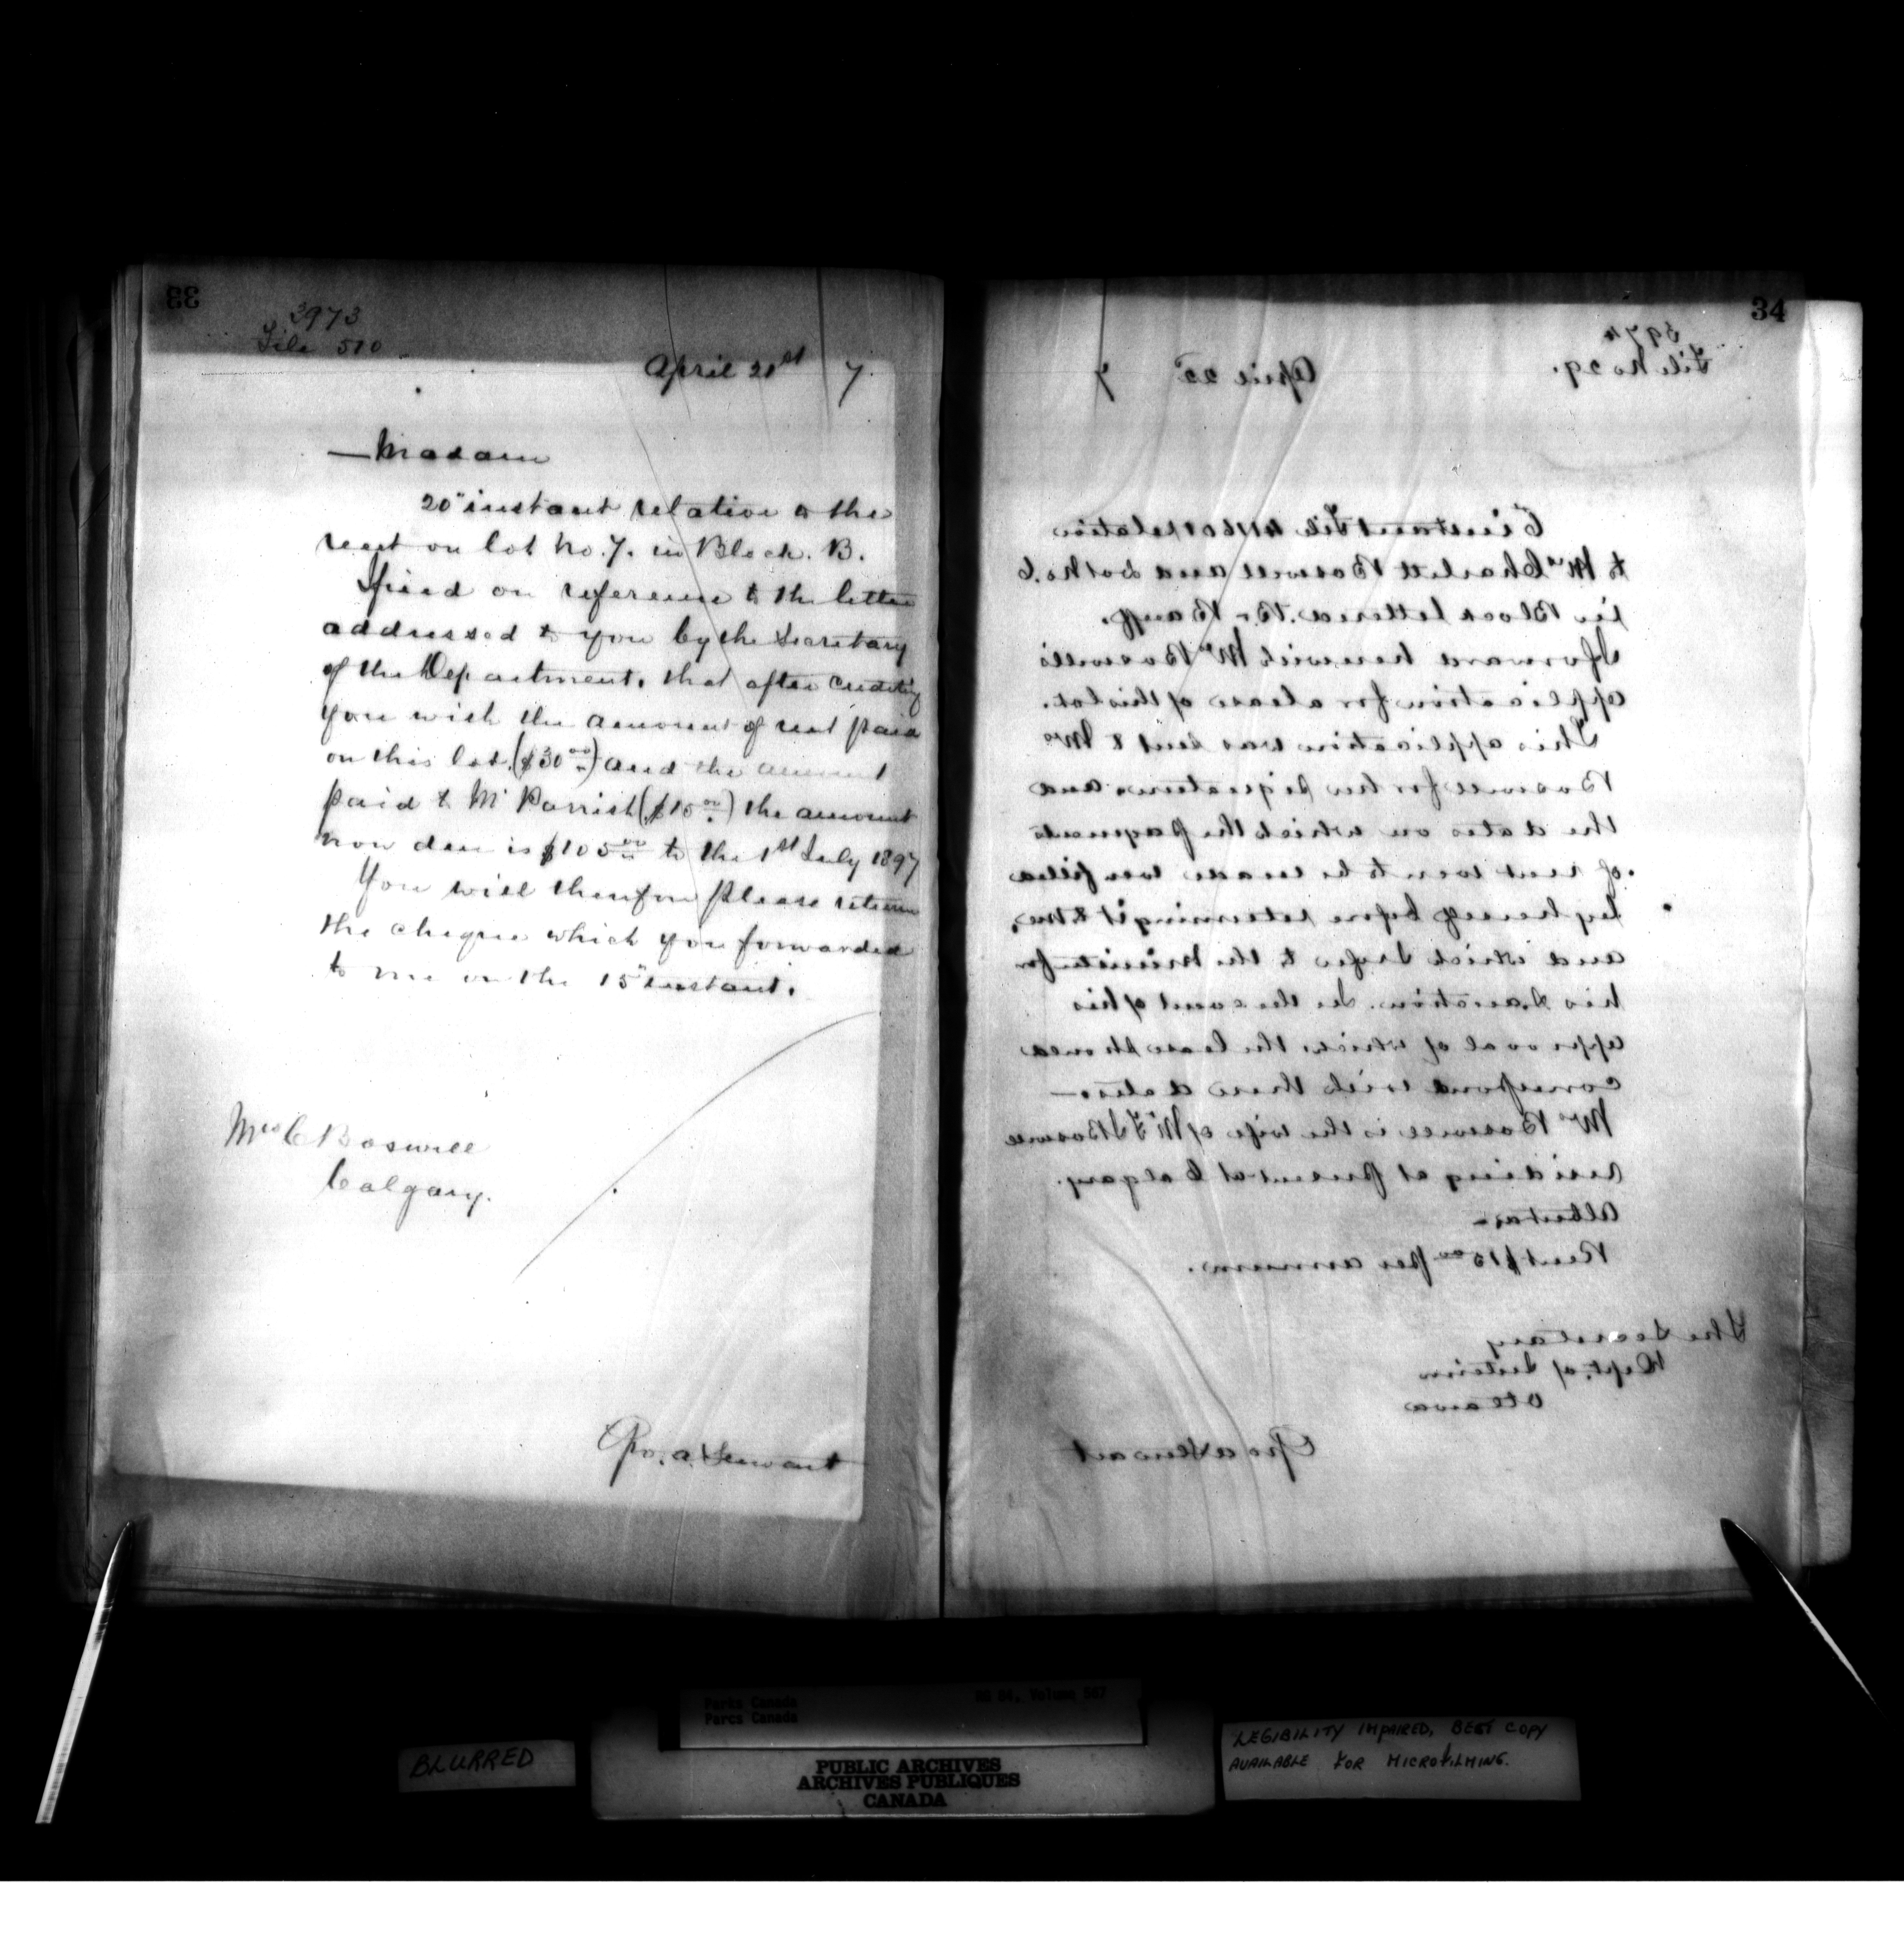 33
3973
File 510
April 21st 7.
Madam
20" instant relative to the
rent on lot No. 7. in Block. B.
I find on reference to the letter
addressed to you by the Secretary
of the Department. that after crediting
you with the amount of rent paid
on this lot. ($30 00) and the amount
paid to Mr Parrish ($15 00) the amount
now due is $105 00 to the 1st July 1897
You will therefore please return
the cheque which you forwarded
to me on the 15" instant.
Mrs C Boswell
Calgary.
Geo. A. Stewart
34
3974
File No 29.
April 22d 7
instant File relative
to Mrs Charlott Boswell and Lot No. 6
in Block lettered. B. Banff.
I forward herewith Mrs Boswell's
application for a lease of this lot.
This application was sent to Mrs
Boswell for her signature and
the dates on which the payments
of rent were to be made were filled
by herself before returning it to me,
and which I refer to the Minister for
his sanction. In the event of his
approval of which the lease should
correspond with these dates—
Mrs Boswell is the wife of Mr Boswell
residing at present at Calgary.
Alberta—
Rent $15 00 per annum.
The Secretary
Dept. of Interior
Ottawa
Geo A Stewart
BLURRED
Parks Canada RG 84, Volume 567
Parcs Canada
PUBLIC ARCHIVES
ARCHIVES PUBLIQUES
CANADA
LEGIBILITY IMPAIRED, BEST COPY
AVAILABLE FOR MICROFILMING.